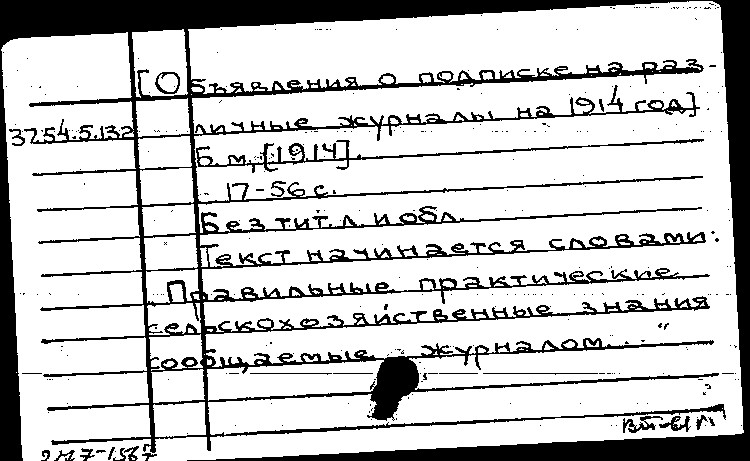 [Объявления о подписке на раз-
37.54.5.132 личные журналы на 1914 год]
Б.м., [1914].
17-56 с.
Без тит. л. и обл.
Текст начинается словами:
„Правильные практические
сельскохозяйственные знания
сообщаемые журналом..."